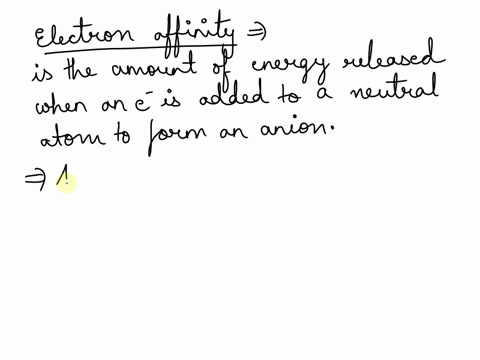 Electron affinity ⇒
is the amount of energy released
when an e⁻ is added to a neutral
atom to form an anion.
⇒